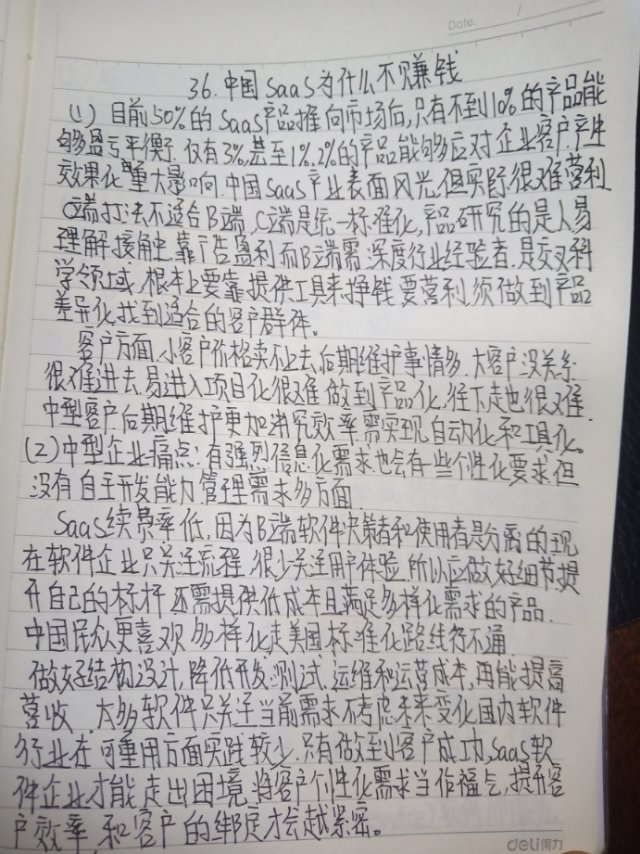 Date.
1
36.中国SaaS为什么不赚钱
(1)目前50%的SaaS产品推向市场后,只有不到10%的产品能
够盈亏平衡.仅有3%,甚至1%,2%的产品能够应对企业客户,产生
效果化重大影响.中国SaaS产业表面风光,但实际很难营利
C端打法不适合B端,C端是统一标准化,产品研究的是人易
理解接触.靠广告盈利而B端需深度行业经验者.是交叉科
学领域,根本上要靠提供工具来挣钱.要营利,须做到产品
差异化,找到适合的客户群体。
客户方面,小客户价格卖不上去,后期维护事情多.大客户没关系
很难进去,易进入项目化很难做到产品化,往下走也很难.
中型客户.后期维护更加讲究效率,需实现自动化和工具化。
(2)中型企业痛点:有强烈信息化需求也会有一些个性化要求,但
没有自主开发能力.管理需求多方面.
SaaS续费率低,因为B端软件决策者和使用者是分离的.现
在软件企业只关注流程.很少关注用户体验.所以应做好细节,提
升自己的标杆.还需提供低成本且满足多样化需求的产品.
中国民众更喜欢多样化走美国标准化路线行不通
做好结构设计,降低开发,测试,运维和运营成本,再能提高
营收.太多软件只关注当前需求不考虑未来变化国内软件
行业在可重用方面实践较少.只有做到客户成功,SaaS软
件企业才能走出困境.将客户个性化需求当作福气,提升客
户效率,和客户的绑定才会越紧密。
deli得力